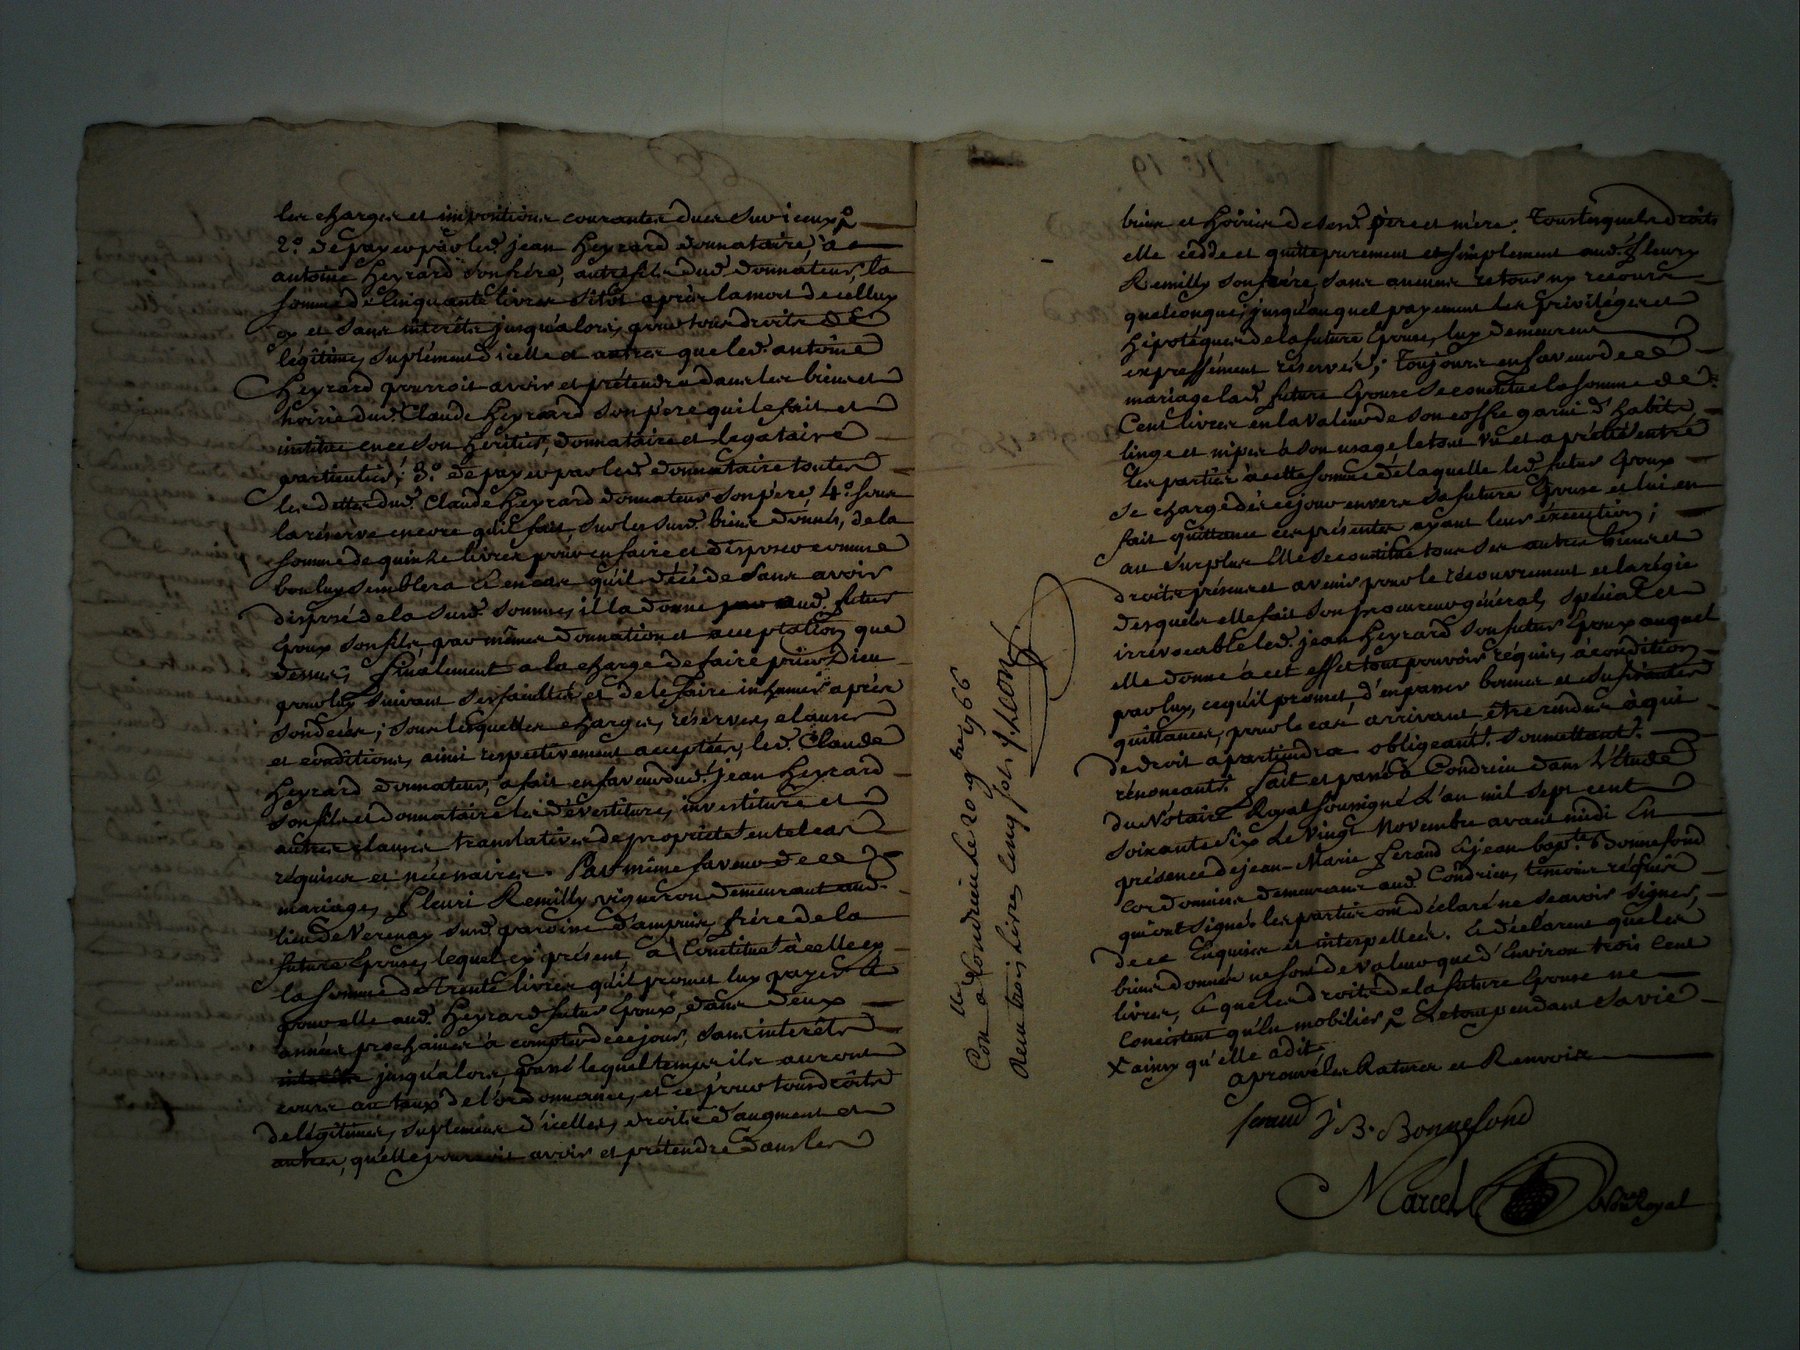 les charges et impositions courantes dues sur iceux,
2.o de payer par led. jean Heyrard donnataire, à
antoine Heyrard son frére, autre fils dud. donnateur, la
somme de Cinquante livres sitôt après la mort de celluy
cy et sans interêts jusqu'alors, pour tous droits de
légitime, suplément d'icelle et autres que led. antoine
Heyrard pourroit avoir et prétendre dans les biens et
hoirie dud. Claude Heyrard son pere qui le fait et
institue en ce son héritier, donnataire et legataire
particulier; 3.o de payer par led. donnataire toutes
les dettes dud. Claude Heyrard donnateur son père, 4.o sous
la réserve encore qu'il fait, sur les susd. biens donnés, de la
somme de quinze livres pour en faire et disposer comme
bon luy semblera & en cas qu'il décéde sans avoir
disposé de la susd. somme, il la donne aud. futur
Epoux son fils par même donnation et acceptation que
dessus, finalement a la charge de faire prier Dieu
pour luy suivant ses facultés et de le faire inhumer après
son decès; sous lesquelles charges, réserves, clauses
et conditions, ainsi respectivement acceptées, led. Claude
Heyrard donnateur, a fait en faveur dud. jean Heyrard
son fils et donnataire les dévestiture, investiture et
autres clauses translatives de propriété en tel cas
requises et nécessaires. Par même faveur de ce
mariage, fleuri Remilly vigneron demeurant aud.
lieu de Verenay susd. paroisse d'ampuis, frére de la
future Epouse, lequel cy présent, a Constitué à celle cy
la somme de Trente livres qu'il promet luy payer &
pour elle aud. Heyrard futur Epoux, dans deux
années prochaines à compter de ce jour, sans interêts
jusqu'alors, passé lequel temps ils auront
cours au taux de l'ordonnance, et ce pour tous droits
de légitimes, suplément d'icelles, droits d'augment et
autres, qu'elle pourroit avoir et prétendre dans les
Con.lle a Condrieu le 20 9bre 1766
Reçu trois livres cinq sols f. Leon
biens et hoiries de ses d. père et mère. Tous lesquels droits
elle cédde et quitte purement et simplement aud. fleury
Remilly son frére, sans aucuns retour ny recours
quelconques, jusqu'auquel payement les priviléges et
hipotéques de la future Epouse, luy demeurent
expressément réservés; Toujours en faveur de ce
mariage lad. future Epouse se constitue la somme de
Cent livres en la valeur de son coffre garni d'habits,
linge et nipes à son usage, le tout vû et aprétié entre
les parties à cette somme de laquelle led. futur Epoux
se charge dès ce jour envers sa future Epouse et lui en
fait quittance ces présentes ayant leur éxécution;
au surplus Elle se constitue tous ses autres biens et
droits présens et avenir pour le recouvrement et la régie
desquels elle fait son procureur général, spécial et
irrévocable led. jean Heyrard son futur Epoux auquel
elle donne à cet effet tout pouvoir réquis, à condition
par luy, ce qu'il promet, d'en passer bonnes et suffisantes
quittances, pour le cas arrivant être rendus à qui
de droit apartiendra obligeant. soumettant.
rénonceant. fait et passé à Condrieu dans l'étude
du Notaire Royal soussigné L'an mil sept cent
soixante six Le Vingt Novembre avant midi En
présence de jean-Marie ferand & jean bap.te Bonnefond
cordonniers demeurans aud. Condrieu, témoins réquis
qui ont signés les parties ont déclaré ne scavoir signer,
de ce Enquises et interpellées. & déclarent que les
biens donnés ne sont de valeur que d'Environ trois cent
livres, & que les droits de la future Epouse ne
consistent qu'En mobilier, & le tout pendant sa vie
x ainsy qu'elle a dit
aprouvé les Ratures et Renvois
feraud J. B. Bonnefond
Marcel Nore. Royal